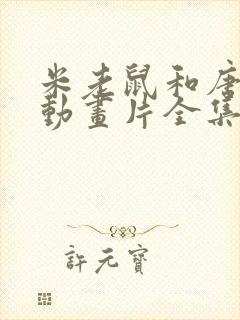 米老鼠和唐
動畫片全集
許元寶